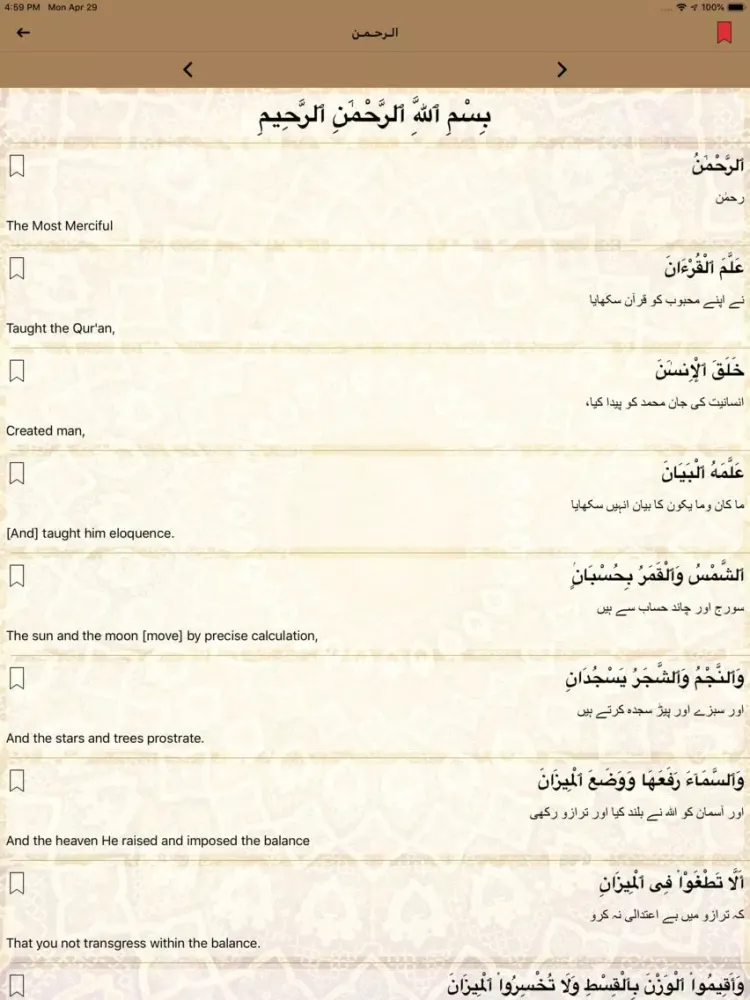 4:59 PM Mon Apr 29
100%
الرحمن
بِسْمِ ٱللَّهِ ٱلرَّحْمَٰنِ ٱلرَّحِيمِ
ٱلرَّحْمَٰنُ
رحمٰن
The Most Merciful
عَلَّمَ ٱلْقُرْءَانَ
نے اپنے محبوب کو قرآن سکھایا
Taught the Qur'an,
خَلَقَ ٱلْإِنسَٰنَ
انسانیت کی جان محمد کو پیدا کیا،
Created man,
عَلَّمَهُ ٱلْبَيَانَ
ما کان وما یکون کا بیان انہیں سکھایا
[And] taught him eloquence.
ٱلشَّمْسُ وَٱلْقَمَرُ بِحُسْبَانٍ
سورج اور چاند حساب سے ہیں
The sun and the moon [move] by precise calculation,
وَٱلنَّجْمُ وَٱلشَّجَرُ يَسْجُدَانِ
اور سبزے اور پیڑ سجدہ کرتے ہیں
And the stars and trees prostrate.
وَٱلسَّمَآءَ رَفَعَهَا وَوَضَعَ ٱلْمِيزَانَ
اور آسمان کو اللہ نے بلند کیا اور ترازو رکھی
And the heaven He raised and imposed the balance
أَلَّا تَطْغَوْا۟ فِى ٱلْمِيزَانِ
کہ ترازو میں بے اعتدالی نہ کرو
That you not transgress within the balance.
وَأَقِيمُوا۟ ٱلْوَزْنَ بِٱلْقِسْطِ وَلَا تُخْسِرُوا۟ ٱلْمِيزَانَ